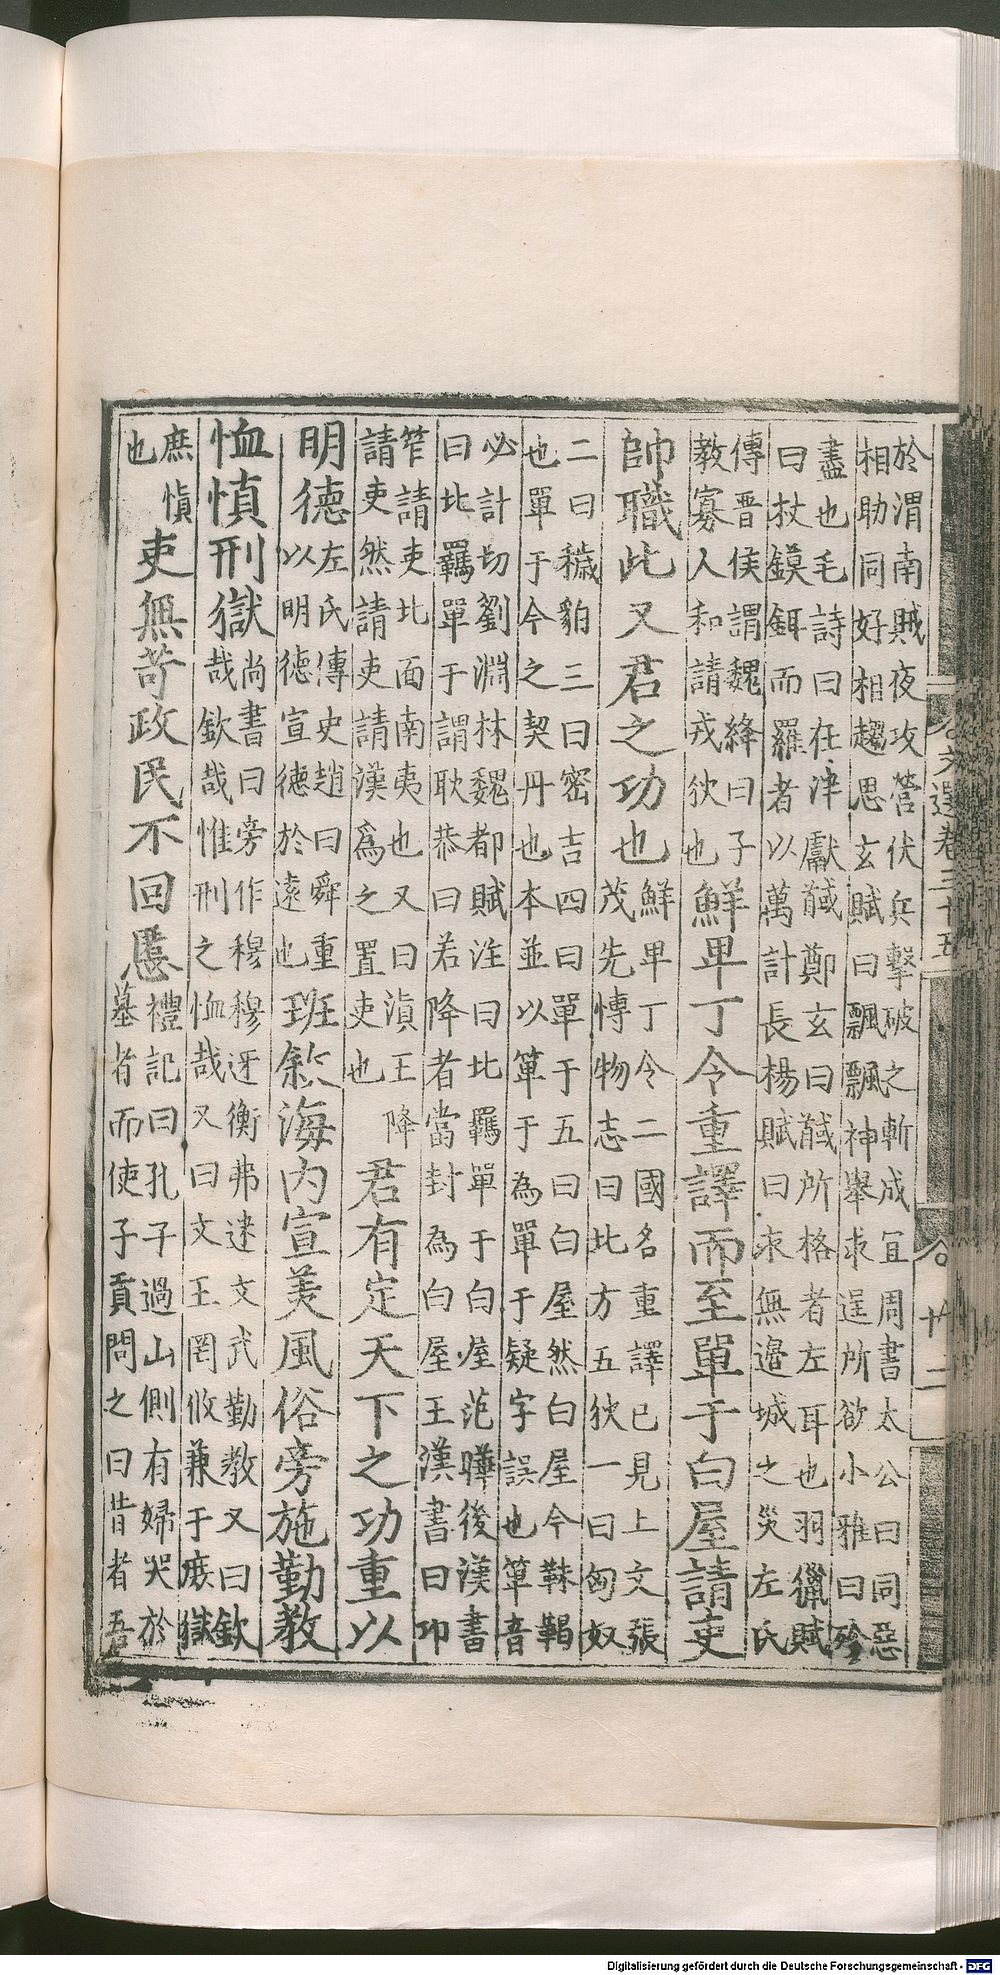 於渭南賊夜攻營伏兵擊破之斬成宜周書太公曰同惡
相助同好相趨思玄賦曰飄飄神舉求逞所欲小雅曰殄
盡也毛詩曰在津獻馘鄭玄曰馘所格者左耳也羽獵賦
曰杖鏌鋣而羅者以萬計長楊賦曰永無邊城之災左氏
傳晉侯謂魏絳曰子
教寡人和請戎狄也
鮮卑丁令重譯而至單于白屋請吏
帥職此又君之功也
鮮卑丁令二國名重譯已見上文張
茂先博物志曰北方五狄一曰匈奴
二曰穢貊三曰密吉四曰單于五曰白屋然白屋今靺鞨
也單于今之契丹也本並以箄于為單于疑字誤也箄音
必計切劉淵林魏都賦注曰北羈單于白屋范曄後漢書
曰北羈單于謂耿恭曰若降者當封為白屋王漢書曰卭
筰請吏北面南夷也又曰滇王降
請吏然請吏請漢為之置吏也
君有定天下之功重以
明德
左氏傳史趙曰舜重
以明德宣德於遠也
班敘海內宣美風俗旁施勤教
恤慎刑獄
尚書曰旁作穆穆迓衡弗迷文武勤教又曰欽
哉欽哉惟刑之恤哉又曰文王罔攸兼于庶獄
庶慎
也
吏無苛政民不回慝
禮記曰孔子過山側有婦哭於
墓者而使子貢問之曰昔者吾
文選卷三十五
廿二
Digitalisierung gefördert durch die Deutsche Forschungsgemeinschaft - DFG